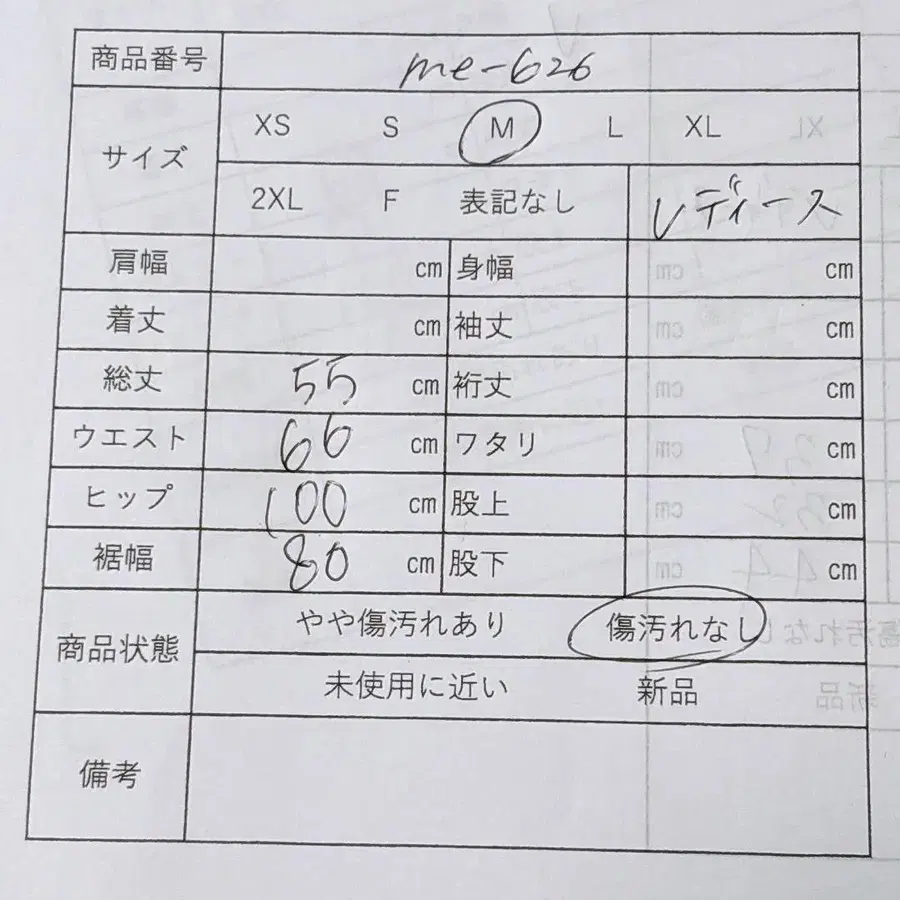 商品番号 me-626
サイズ XS S M L XL
2XL F 表記なし レディース
肩幅 cm 身幅 cm
着丈 cm 袖丈 cm
総丈 55 cm 裄丈 cm
ウエスト 66 cm ワタリ cm
ヒップ 100 cm 股上 cm
裾幅 80 cm 股下 cm
商品状態 やや傷汚れあり 傷汚れなし
未使用に近い 新品
備考